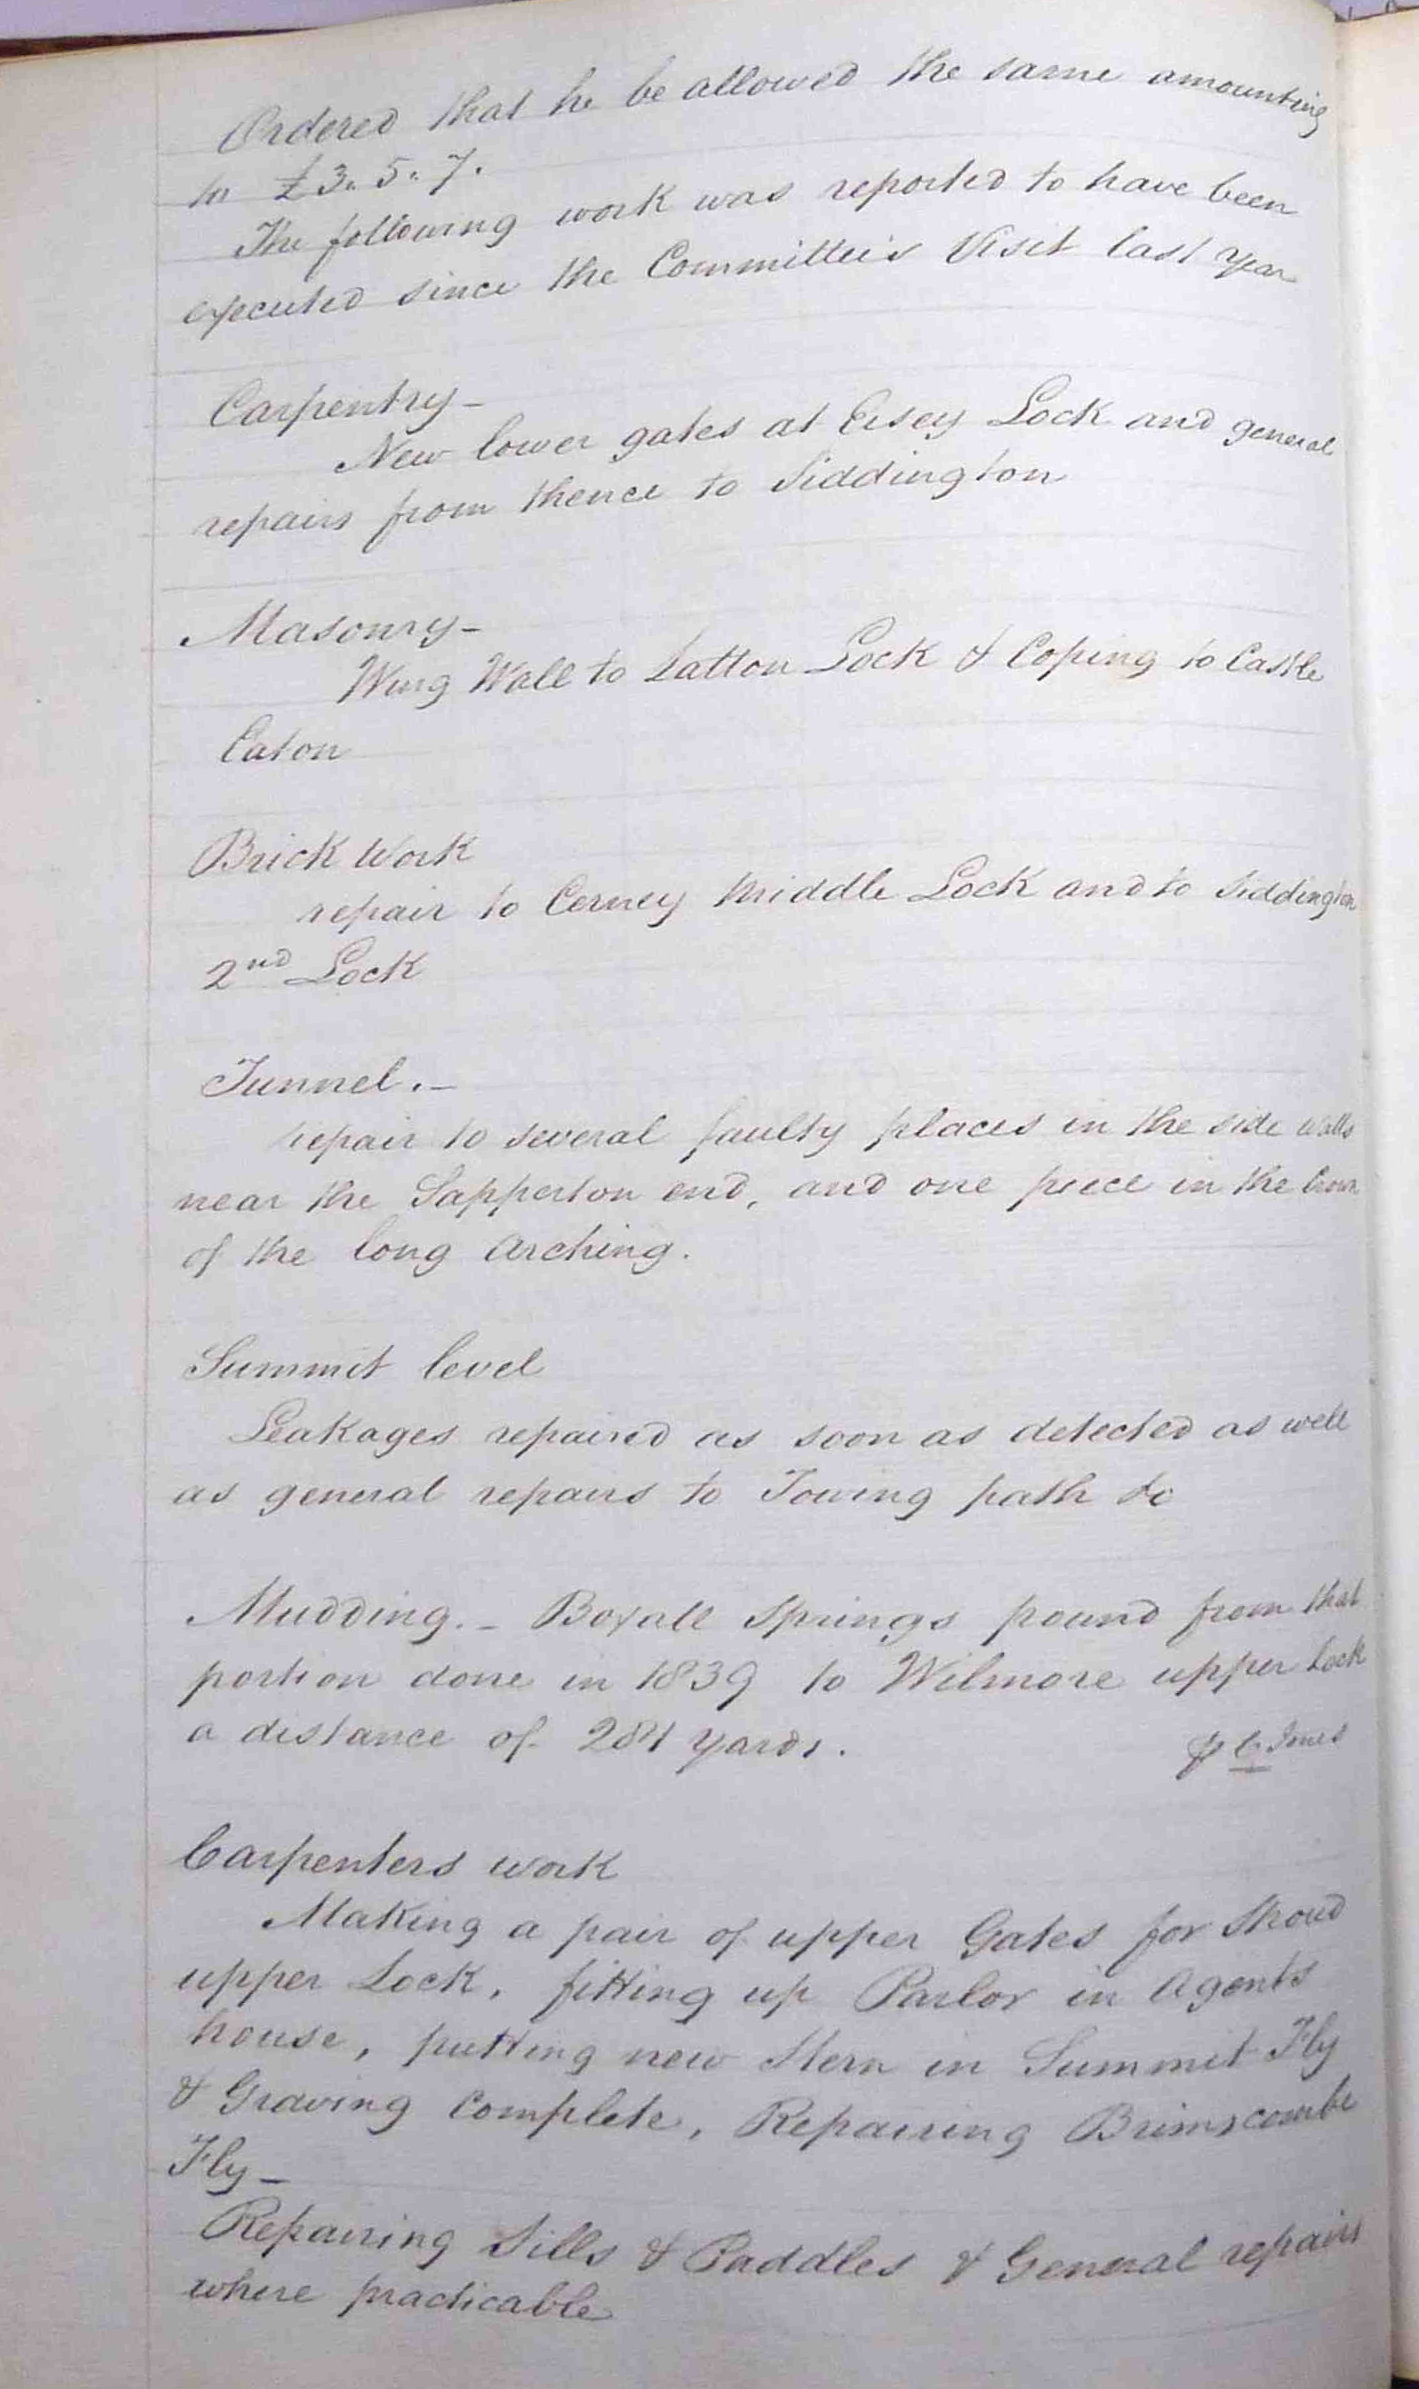 Ordered that he be allowed the same amounting
to £3. 5. 7.
The following work was reported to have been
executed since the Committee's Visit last year
Carpentry -
New lower gates at Eisey Lock and general
repairs from thence to Siddington
Masonry -
Wing Wall to Latton Lock & Coping to Castle
Eaton
Brick Work
repair to Cerney Middle Lock and to Siddington
2nd Lock
Tunnel. -
repair to several faulty places in the side walls
near the Sapperton end, and one piece in the Crown
of the long arching.
Summit level
Leakages repaired as soon as detected as well
as general repairs to Towing path &c
Mudding. - Boxall Springs pound from that
portion done in 1839 to Wilmore upper Lock
a distance of yards.
Jones
Carpenters work
Making a pair of upper Gates for Stroud
upper Lock, fitting up Parlor in Agents
house, putting new Stern in Summit Fly
& Graving Complete, Repairing Brimscombe
Fly -
Repairing Sills & Paddles & General repairs
where practicable